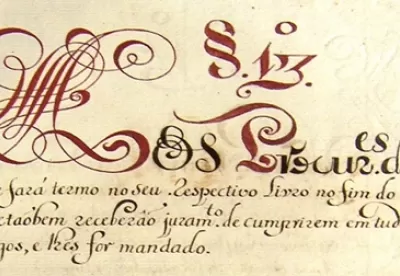 §. 13.º
Aos Procur.es d
fará termo no seu Respectivo Livro no fim do
taõbem receberão juram.to de cumprirem em tud
gos, e lhes for mandado.